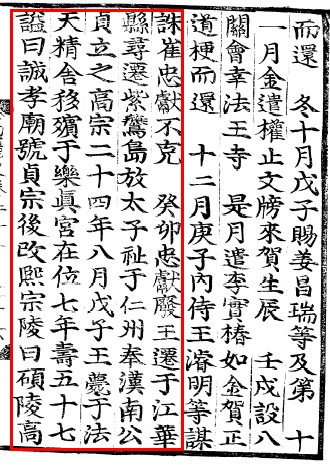 而還　冬十月戊子賜姜昌瑞等及第　十
一月金遣權正文牓來賀生辰　壬戌設八
關會幸法王寺　是月遣李實椿如金賀正
道梗而還　十二月庚子內侍王濬明等謀
誅崔忠獻不克　癸卯忠獻廢王遷于江華
縣尋遷紫鷰島放太子祉于仁州奉漢南公
貞立之高宗二十四年八月戊子王薨于法
天精舍移殯于樂眞宮在位七年壽五十七
謚曰誠孝廟號貞宗後改熙宗陵曰碩陵高